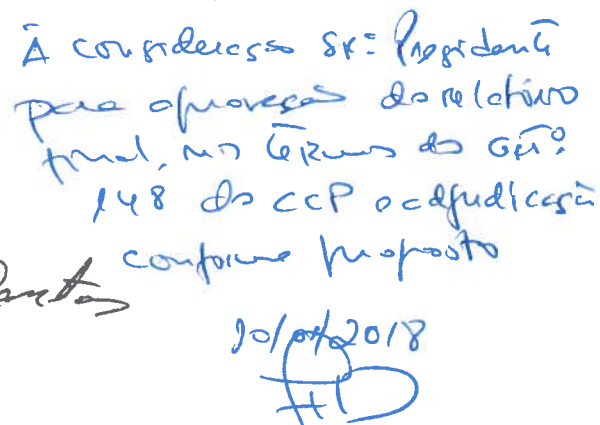 À consideração Srª Presidente
para aprovação do relatório
final, nos termos do artº
148 do CCP e adjudicação
conforme proposto
Santos
2018